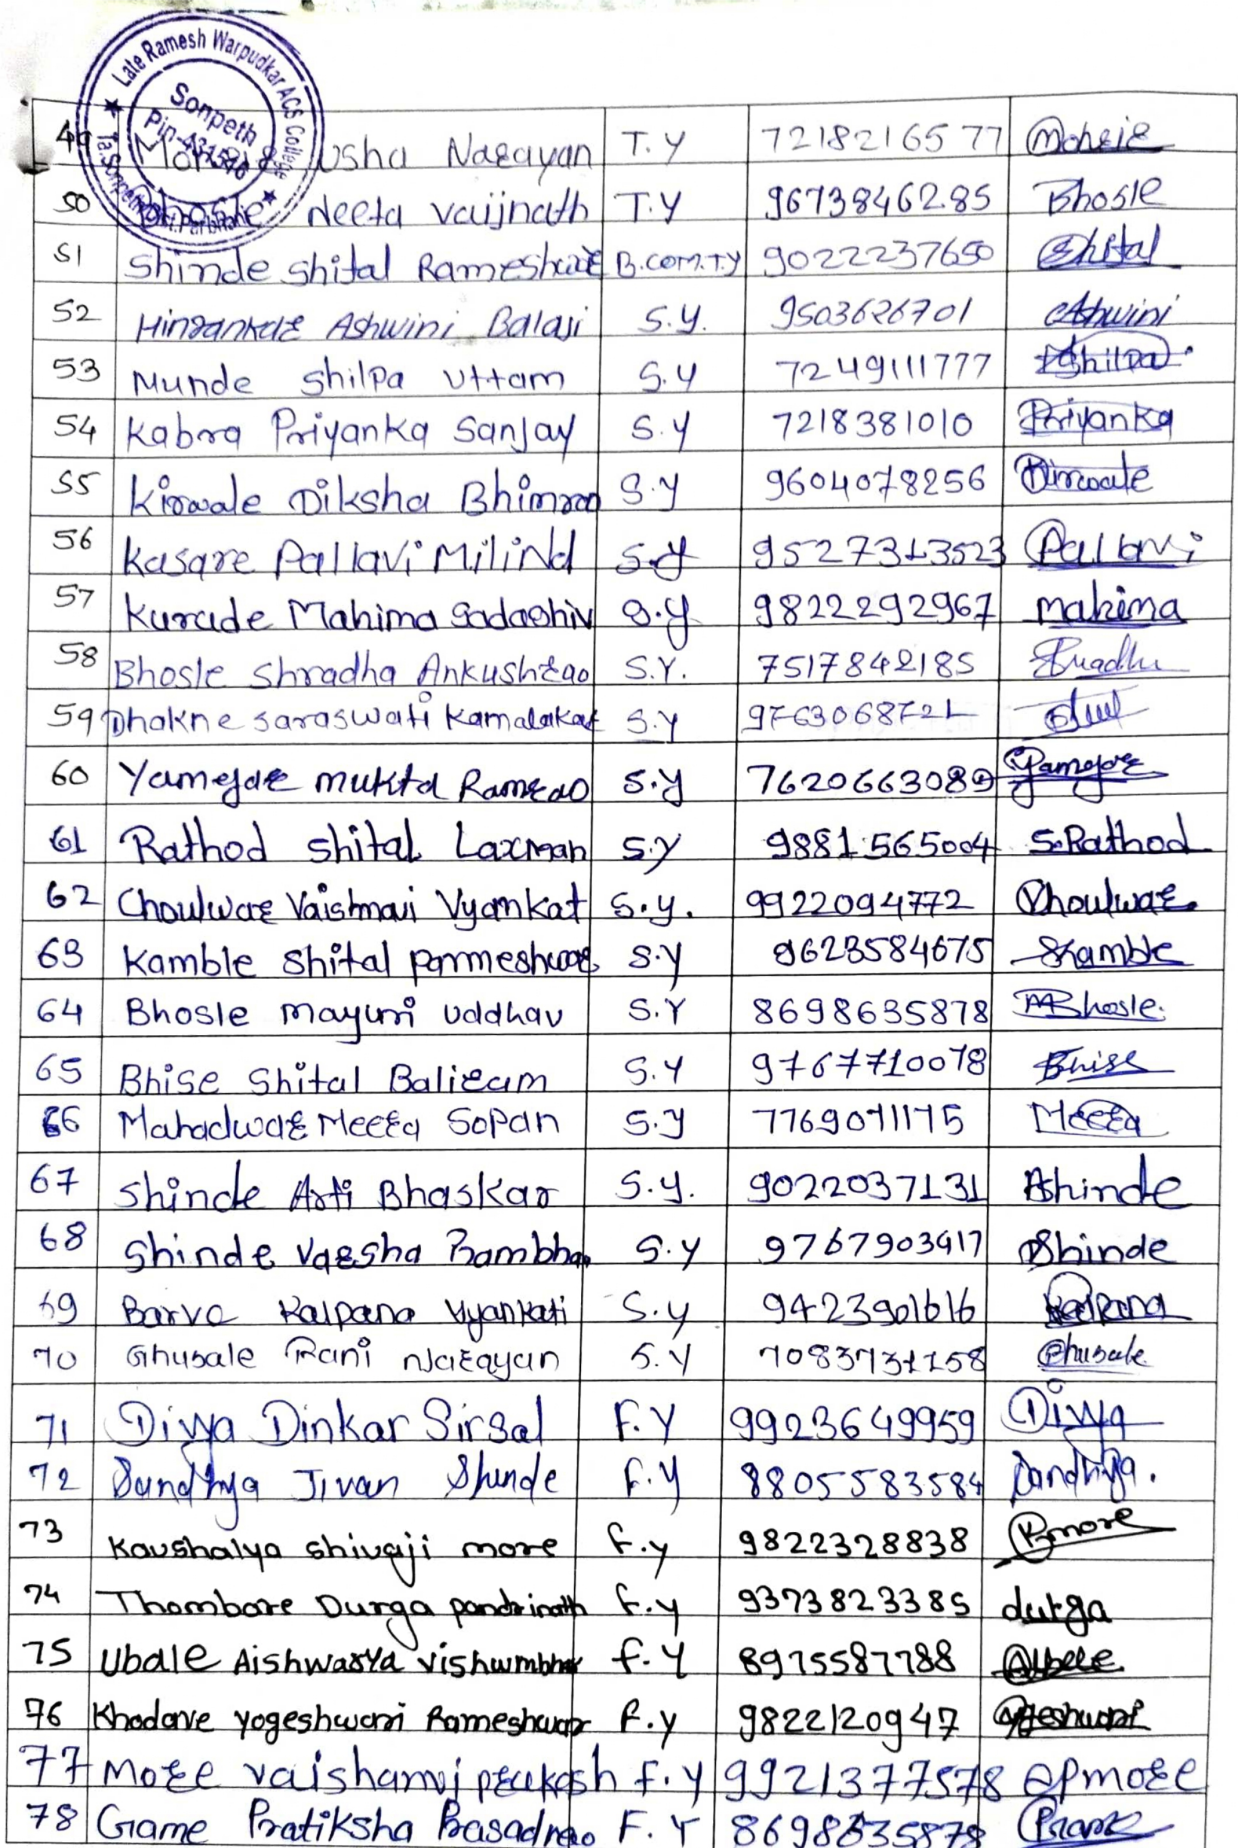 Late Ramesh Warpudkar ACS College
Sonpeth
Pin-431516
Ta.Sonpeth Dist.Parbhani
49 Usha Narayan T.Y 7218216577
50 Bhosle Neeta vaijnath T.Y 9673846285 Bhosle
51 Shinde Shital Rameshwar B.com.T.y 9022237650 Shital
52 Hingankar Ashwini Balaji S.y. 9503626701 Ashwini
53 Munde Shilpa Uttam S.y 7249111777 Shilpa
54 Kabra Priyanka Sanjay S.y 7218381010 Priyanka
55 Kirwale Diksha Bhimrao S.y 9604078256 Kirwale
56 Kasare Pallavi Milind S.y 9527313523 Pallavi
57 Kurude Mahima Sadashiv S.y 9822292967 mahima
58 Bhosle Shradha Ankushrao S.Y. 7517842185 Shradha
59 Dhakne saraswati Kamalakar S.y 9763068721
60 Yamejar mukta Ramrao S.y 7620663089 Yamejar
61 Rathod shital Laxman S.y 9881565004 S.Rathod
62 Choulwar Vaishnavi Vyankat S.y. 9922094772 Choulwar
63 Kamble Shital parmeshwar S.y 9623584675 Skamble
64 Bhosle mayuri uddhav S.Y 8698635878 MBhosle.
65 Bhise Shital Baliram S.y 9767710078 Bhise
66 Mahadwar Meera Sopan S.y 7769071175 Meera
67 Shinde Arti Bhaskar S.y. 9022037131 Ashinde
68 Shinde Varsha Rambhau S.y 9767903417 Shinde
69 Barve Kalpana Vyankati S.y 9423901616 Kalpana
70 Ghusale Rani Narayan S.y 7083731158 Ghusale
71 Divya Dinkar Sirsal F.Y 9923649959 Divya
72 Sandhya Jivan Shinde F.y 8805583584 Sandhya.
73 Kaushalya shivaji more F.y 9822328838 Kmore
74 Thombare Durga pandrinath F.y 9373823385 durga
75 Ubale Aishwarya vishwmbhar F.Y 8975587788 Ubale
76 Khodave yogeshwari Rameshwar F.y 9822120947 Yogeshwari
77 More vaishanvi prakash F.y 9921377578 vpmore
78 Game Pratiksha Prasadrao F.Y 8698635878